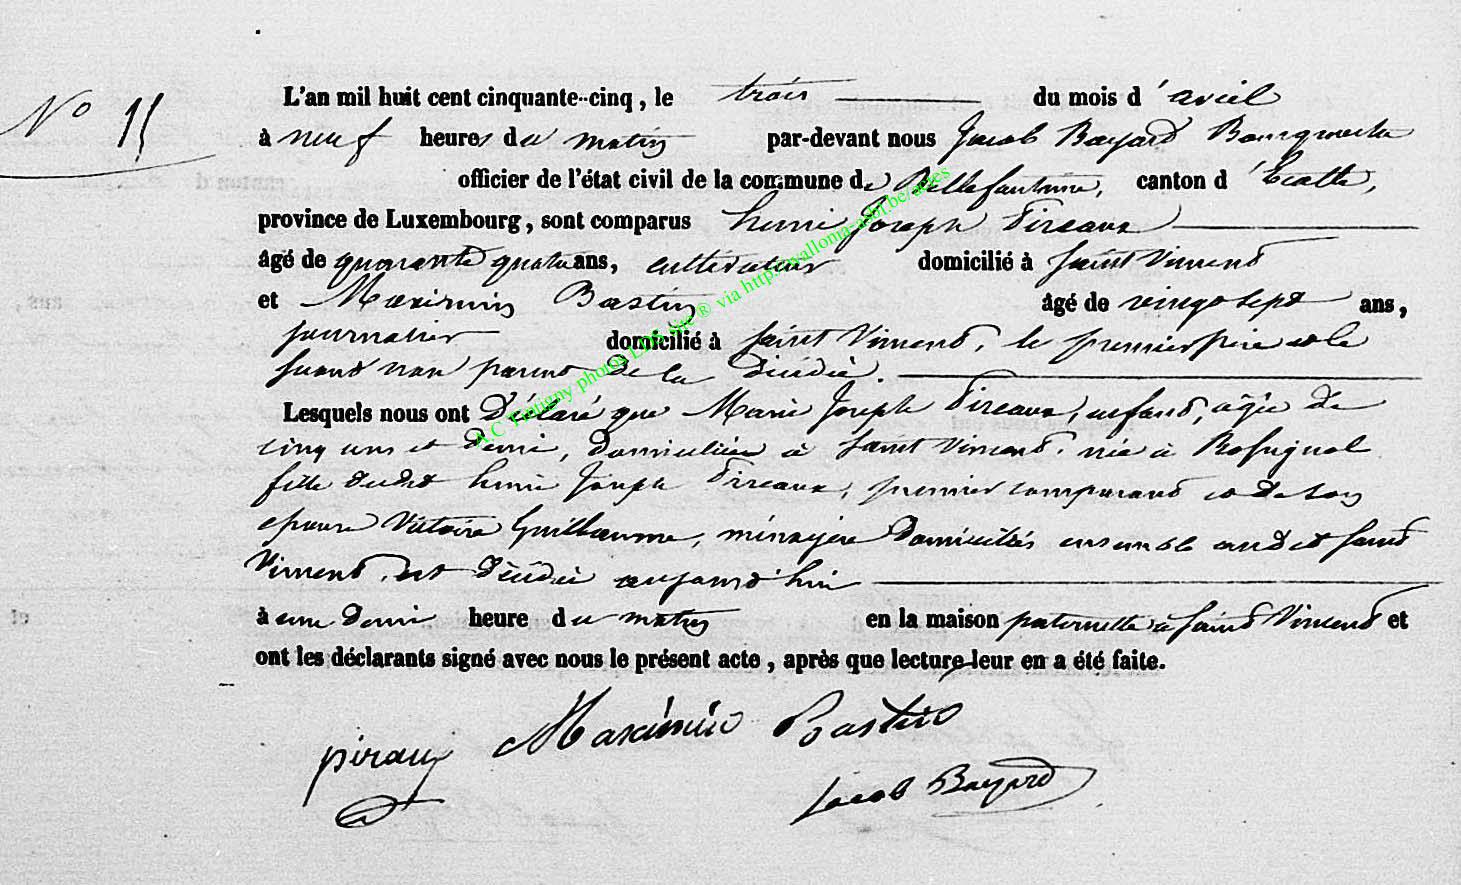 N° 15
L'an mil huit cent cinquante-cinq, le trois du mois d'avril
à neuf heures du matin par-devant nous Jacob Bayard Bourgmestre
officier de l'état civil de la commune de Bellefontaine, canton d'Etalle,
province de Luxembourg, sont comparus henri Joseph Pireaux
âgé de quarante quatre ans, cultivateur domicilié à Saint Vincent
et Maximin Bastin âgé de vingt sept ans,
journalier domicilié à Saint Vincent, le premier père et le
second non parent de la décédée.
Lesquels nous ont Déclaré que Marie Joseph Pireaux, enfant, agée de
cinq ans et demi, domiciliée à Saint Vincent, née à Rossignol
fille dudit henri Joseph Pireaux, premier comparant et de son
epouse Victoire Guillaume, ménagère domiciliés ensemble audit Saint
Vincent, est décédée aujourd'hui
à une demi heure du matin en la maison paternelle à Saint Vincent et
ont les déclarants signé avec nous le présent acte, après que lecture leur en a été faite.
piraux Maximin Bastin
Jacob Bayard
AC Tintigny photos LDS site ® via http://wallonia-asbl.be/actes